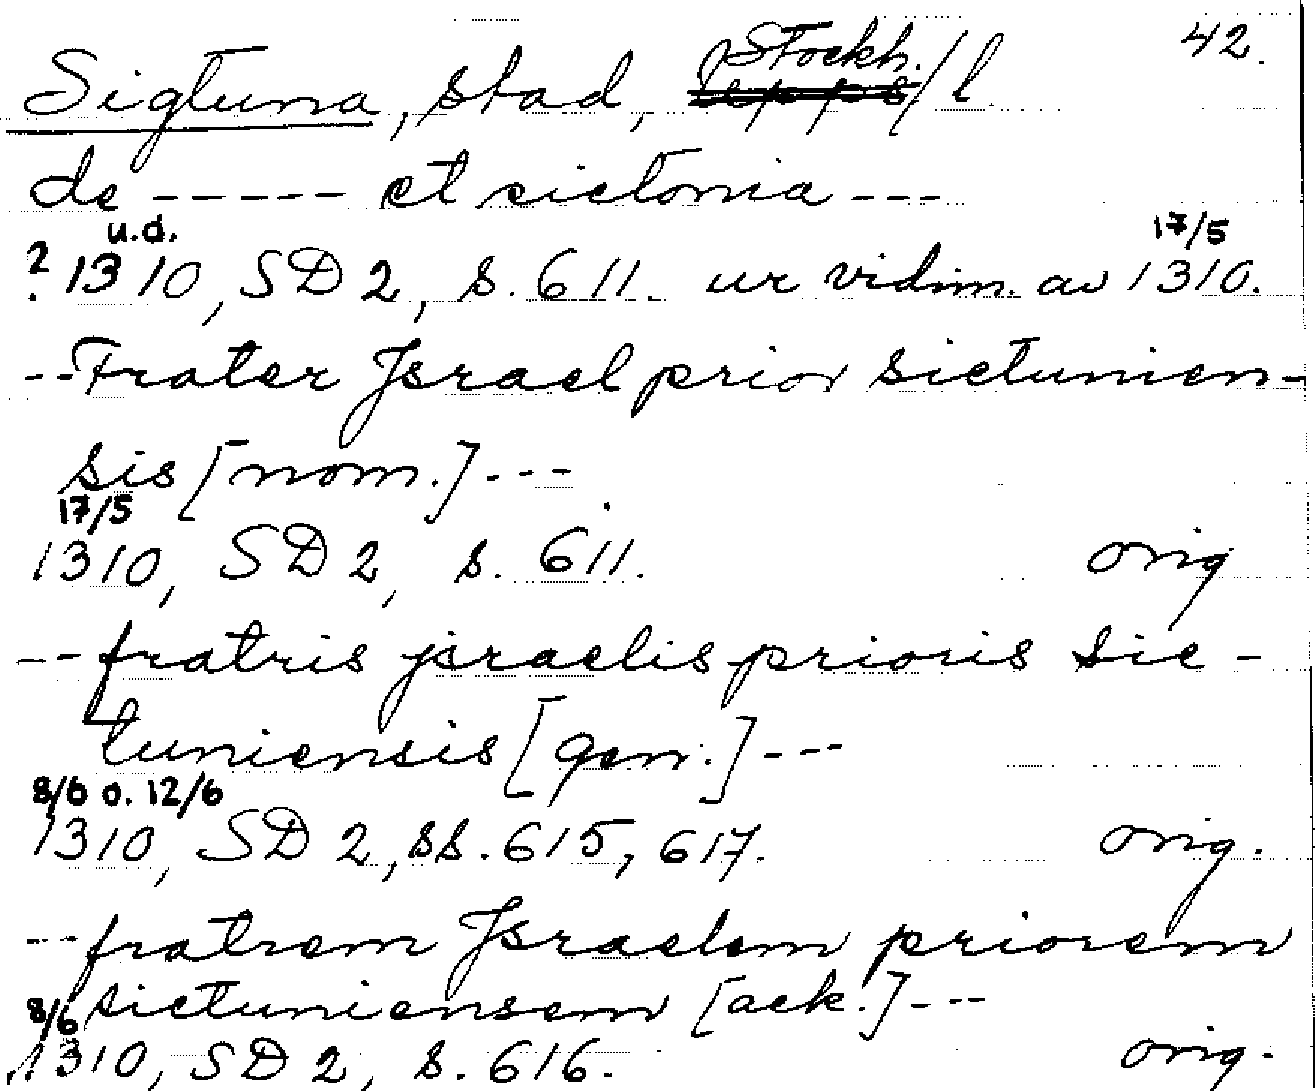 42.
Sigtuna, stad, Stockh./l
de ----- et sictonia ---
u.d. 17/5
? 1310, SD 2, s. 611. ur vidim. av 1310.
--Frater Jsrael prior sictunien-
sis [nom.]---
17/5
1310, SD 2, s. 611. orig
--fratris jsraelis prioris sic-
tuniensis [gen.]---
8/6 o. 12/6
1310, SD 2, ss. 615, 617. orig.
--fratrem Jsraelem priorem
sictuniensem [ack.]---
8/6
1310, SD 2, s. 616. orig.